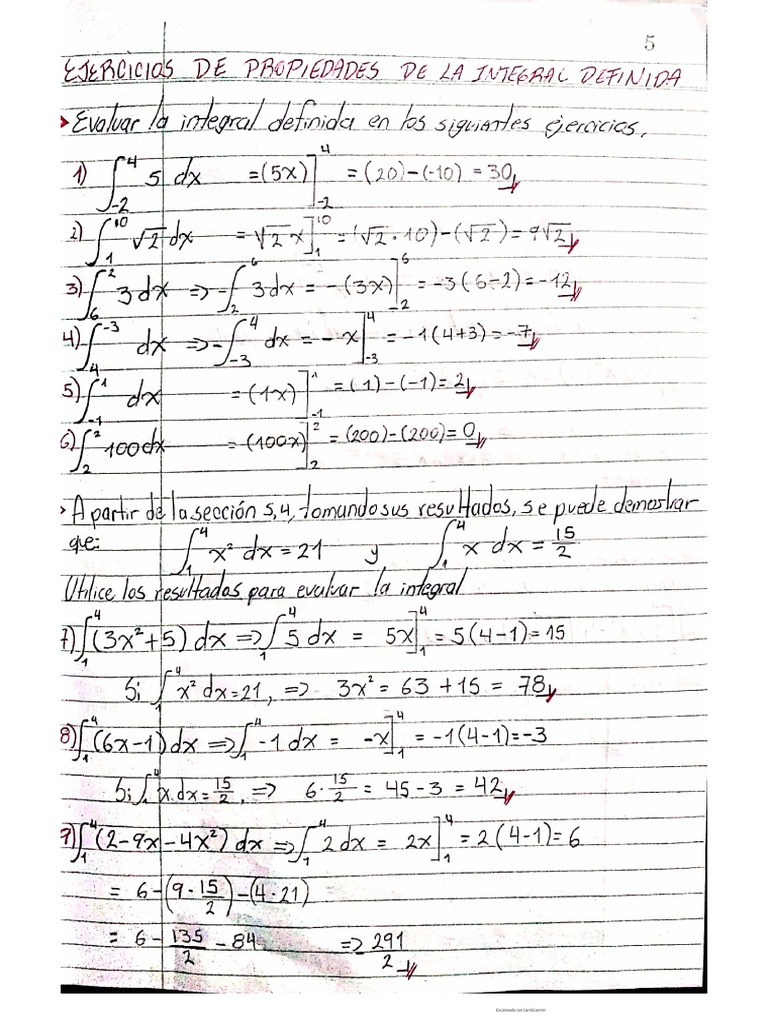 5
EJERCICIOS DE PROPIEDADES DE LA INTEGRAL DEFINIDA
> Evaluar la integral definida en los siguientes ejercicios.
1) ∫₋₂⁴ 5 dx = (5x)]₋₂⁴ = (20)-(-10) = 30
2) ∫₁¹⁰ √2 dx = √2 x]₁¹⁰ = (√2·10)-(√2) = 9√2
3) ∫₆² 3 dx => -∫₂⁶ 3 dx = -(3x)]₋₂⁶ = -3(6-2) = -12
4) ∫₄⁻³ dx => -∫₋₃⁴ dx = -x]₋₃⁴ = -1(4+3) = -7
5) ∫₋₁¹ dx = (1x)]₋₁¹ = (1)-(-1) = 2
6) ∫₂² 100 dx = (100x)]₂² = (200)-(200) = 0
> A partir de la sección 5,4, tomando sus resultados, se puede demostrar
que: ∫₁⁴ x² dx = 21 y ∫₁⁴ x dx = 15/2
Utilice los resultados para evaluar la integral
7) ∫₁⁴ (3x²+5) dx => ∫₁⁴ 5 dx = 5x]₁⁴ = 5(4-1) = 15
Si ∫₁⁴ x² dx = 21, => 3x² = 63 + 15 = 78
8) ∫₁⁴ (6x-1) dx => ∫₁⁴ -1 dx = -x]₁⁴ = -1(4-1) = -3
Si ∫₁⁴ x dx = 15/2, => 6·15/2 = 45 - 3 = 42
9) ∫₁⁴ (2-9x-4x²) dx => ∫₁⁴ 2 dx = 2x]₁⁴ = 2(4-1) = 6
= 6-(9·15/2)-(4·21)
= 6 - 135/2 - 84 => -291/2
Escaneado con CamScanner